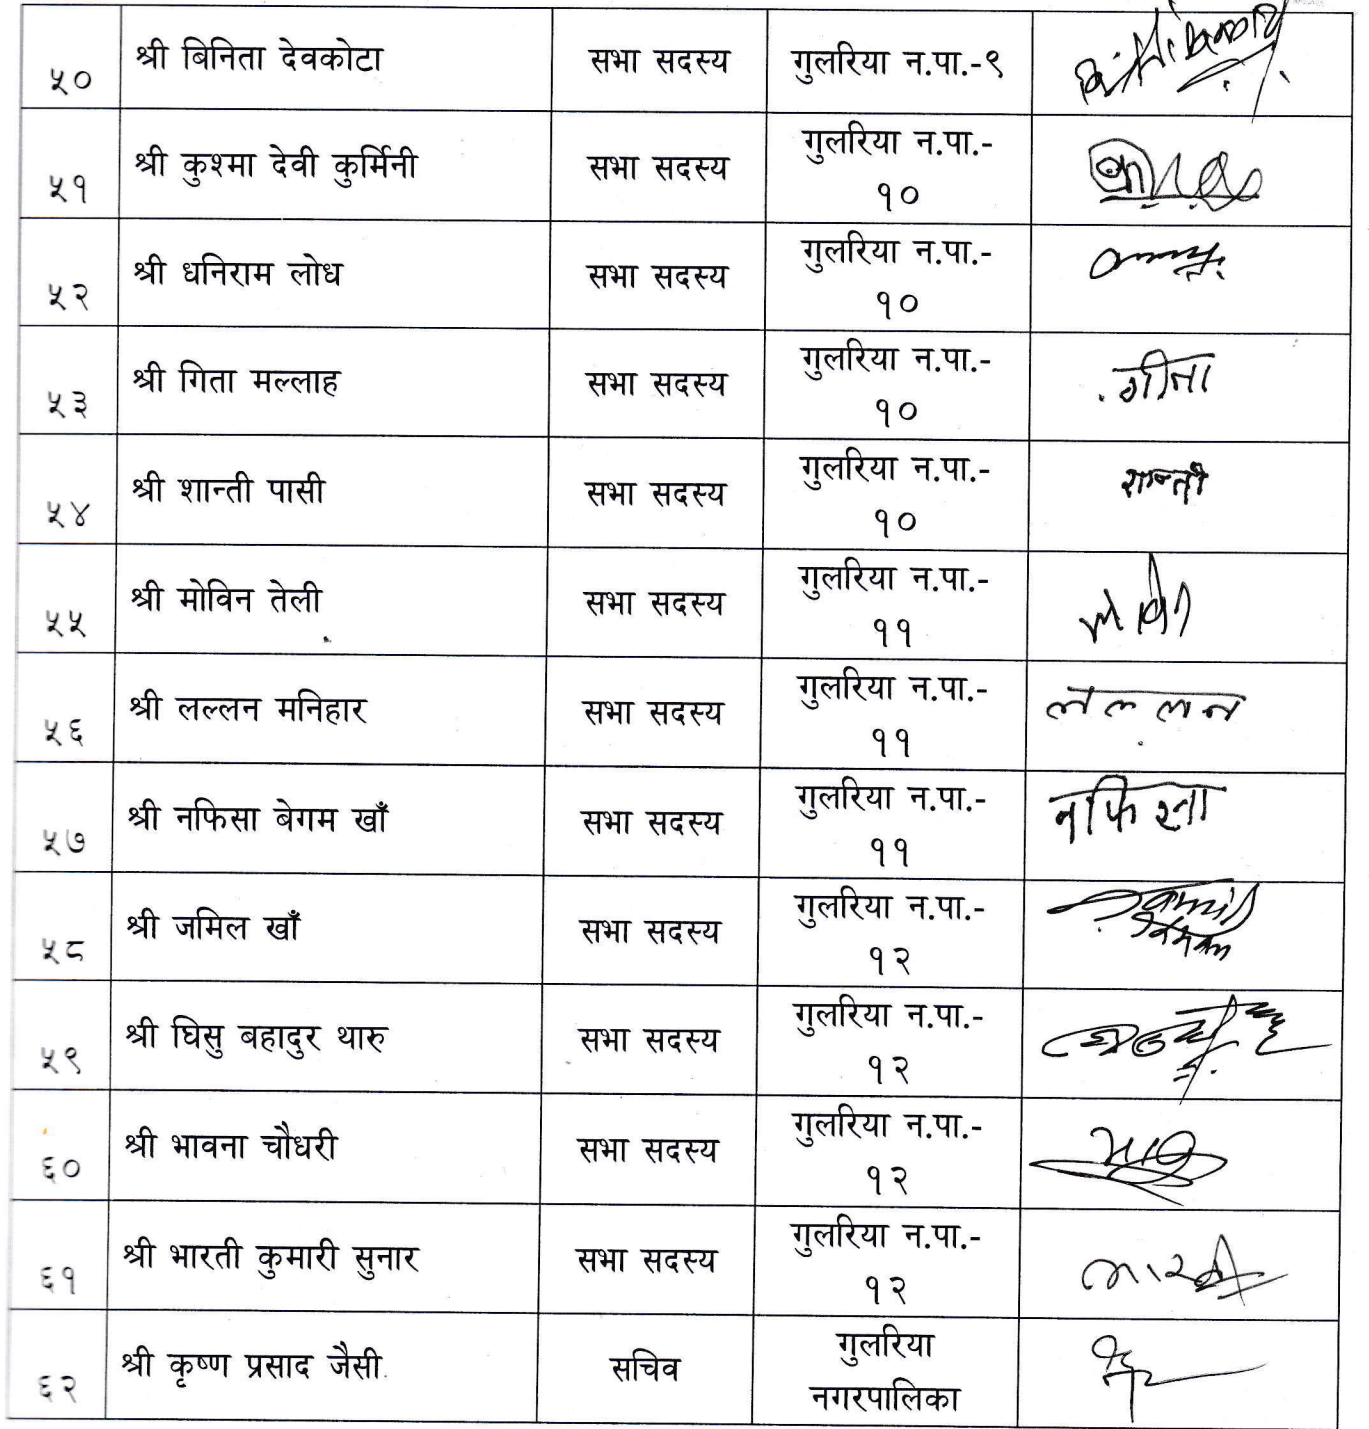 ५० श्री बिनिता देवकोटा सभा सदस्य गुलरिया न.पा.-९
५१ श्री कुश्मा देवी कुर्मिनी सभा सदस्य गुलरिया न.पा.-
१०
५२ श्री धनिराम लोध सभा सदस्य गुलरिया न.पा.-
१०
५३ श्री गिता मल्लाह सभा सदस्य गुलरिया न.पा.-
१० गीता
५४ श्री शान्ती पासी सभा सदस्य गुलरिया न.पा.-
१० शान्ती
५५ श्री मोविन तेली सभा सदस्य गुलरिया न.पा.-
११
५६ श्री लल्लन मनिहार सभा सदस्य गुलरिया न.पा.-
११ ललन
५७ श्री नफिसा बेगम खाँ सभा सदस्य गुलरिया न.पा.-
११ नफिसा
५८ श्री जमिल खाँ सभा सदस्य गुलरिया न.पा.-
१२
५९ श्री घिसु बहादुर थारु सभा सदस्य गुलरिया न.पा.-
१२
६० श्री भावना चौधरी सभा सदस्य गुलरिया न.पा.-
१२
६१ श्री भारती कुमारी सुनार सभा सदस्य गुलरिया न.पा.-
१२
६२ श्री कृष्ण प्रसाद जैसी सचिव गुलरिया
नगरपालिका